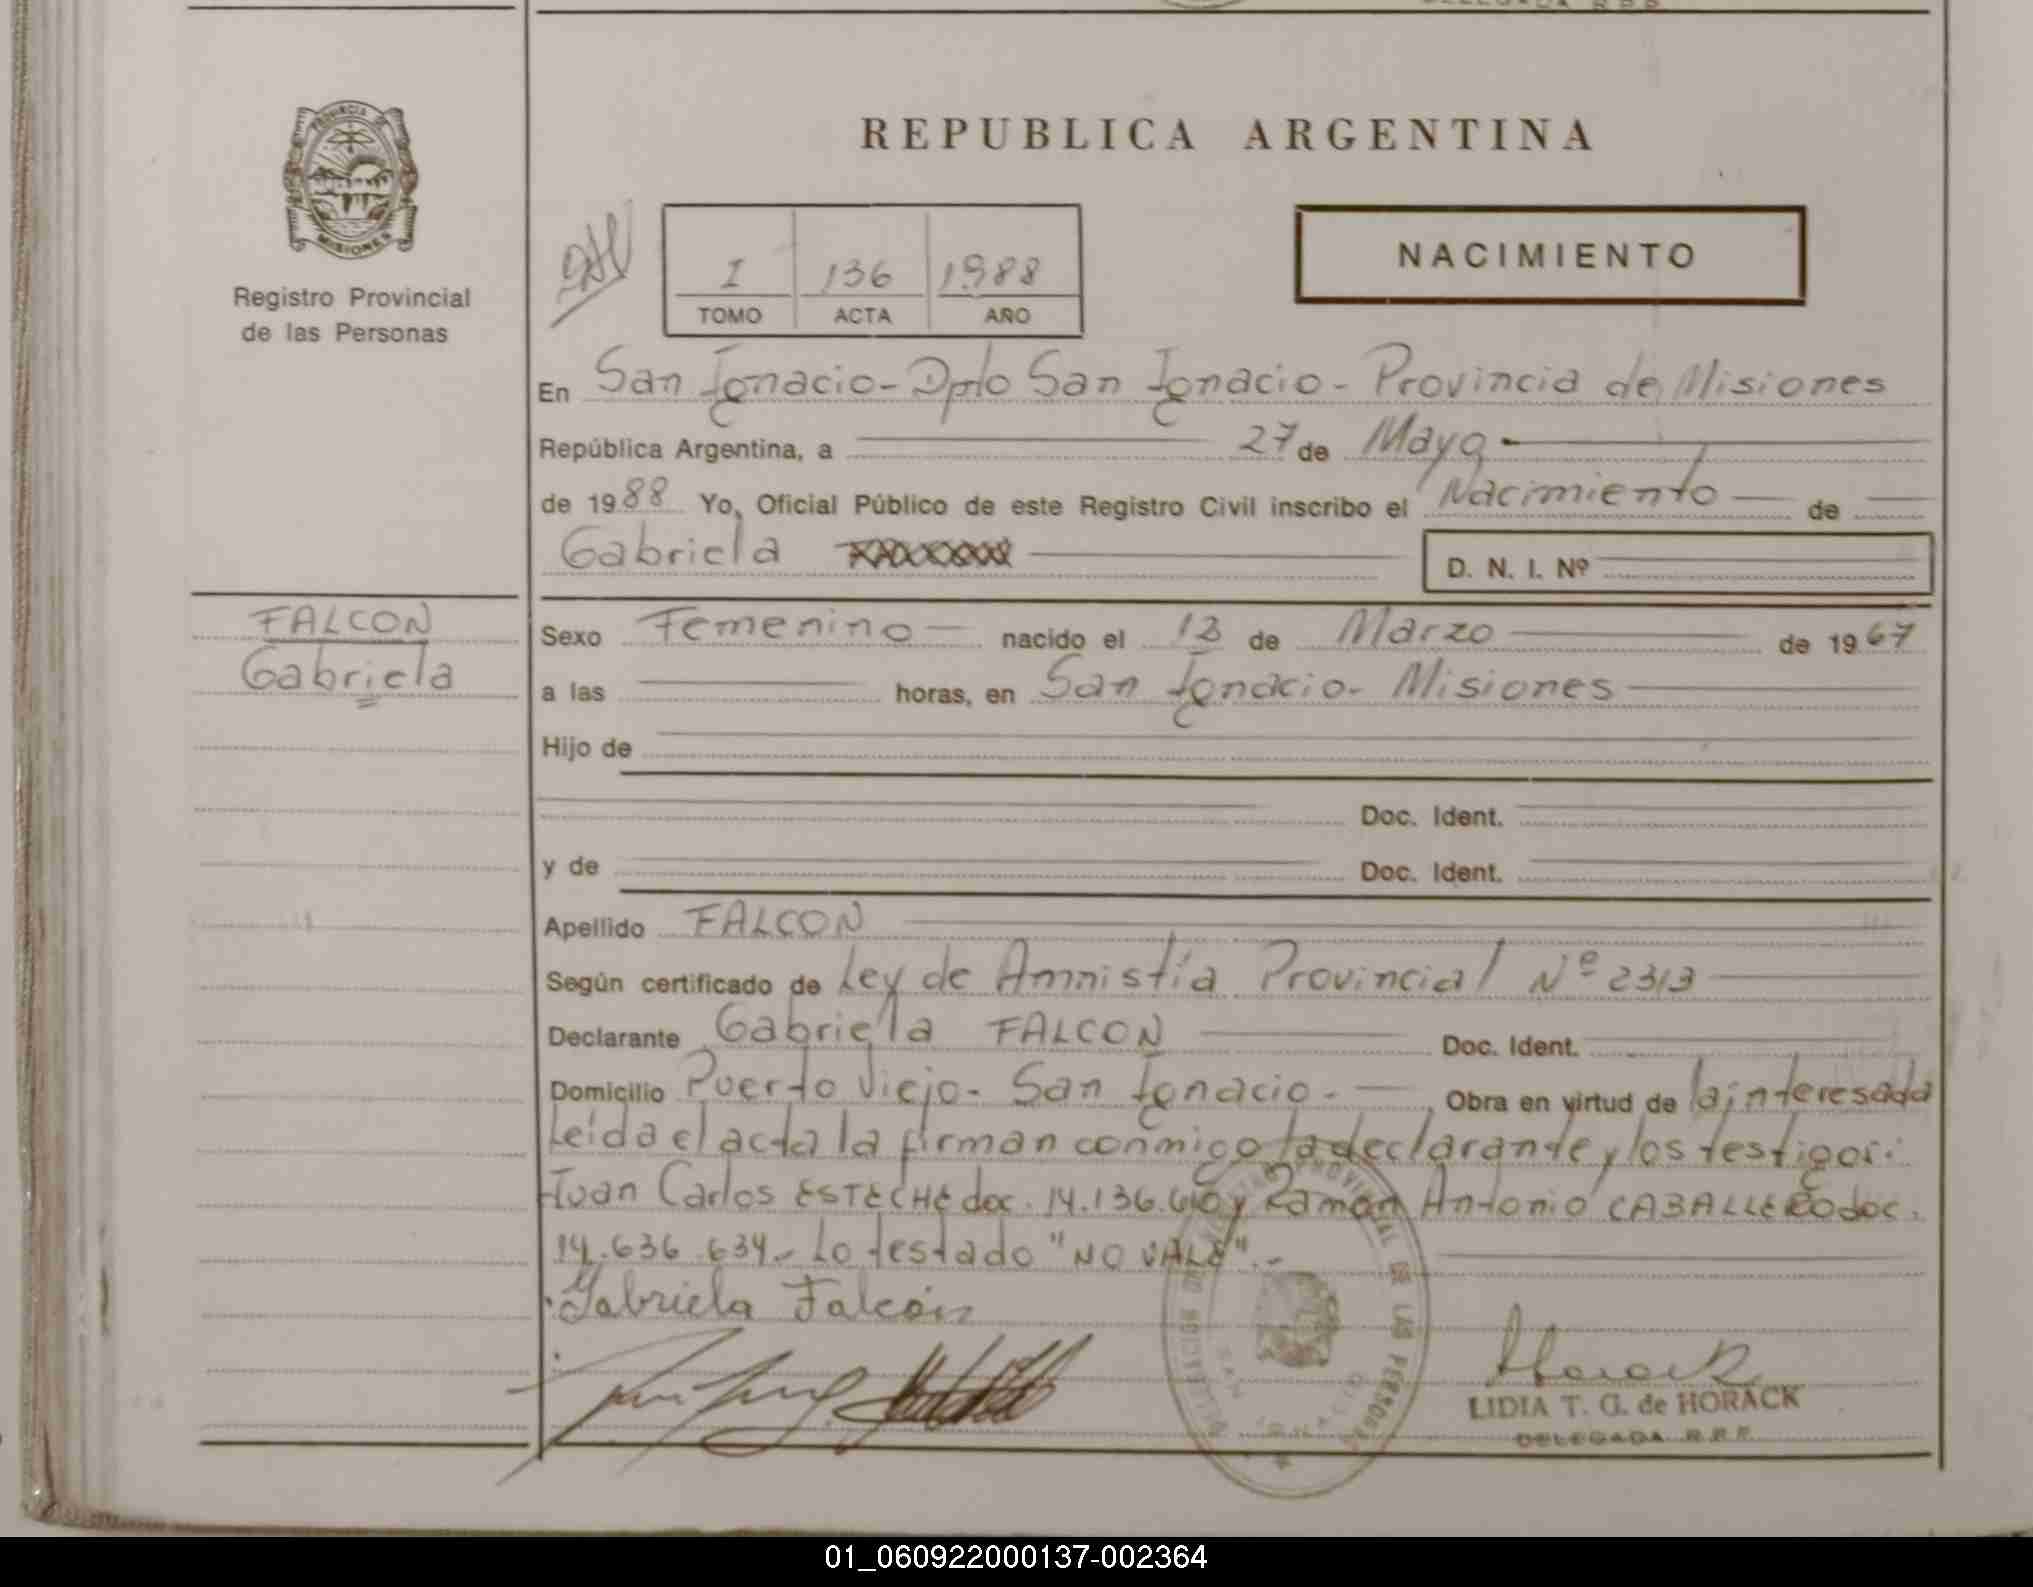 REPUBLICA ARGENTINA
PROVINCIA DE
MISIONES
Registro Provincial
de las Personas
I 136 1988
TOMO ACTA AÑO
NACIMIENTO
En San Ignacio - Dpto San Ignacio - Provincia de Misiones
República Argentina, a 27 de Mayo
de 1988 Yo, Oficial Público de este Registro Civil inscribo el Nacimiento de
Gabriela
D. N. I. Nº
FALCON
Gabriela
Sexo Femenino nacido el 13 de Marzo de 1967
a las horas, en San Ignacio - Misiones
Hijo de
Doc. Ident.
y de Doc. Ident.
Apellido FALCON
Según certificado de Ley de Amnistía Provincial Nº 2313
Declarante Gabriela FALCON Doc. Ident.
Domicilio Puerto Viejo - San Ignacio - Obra en virtud de la interesada
Leída el acta la firman conmigo la declarante y los testigos:
Juan Carlos ESTECHE doc. 14.136.610 y Ramón Antonio CABALLERO doc.
14.636.634.- Lo testado "NO VALE".-
Gabriela Falcón
DELEGACION DE REGISTRO PROVINCIAL DE LAS PERSONAS
SAN IGNACIO
Horack
LIDIA T. G. de HORACK
DELEGADA R.P.P.
01_060922000137-002364